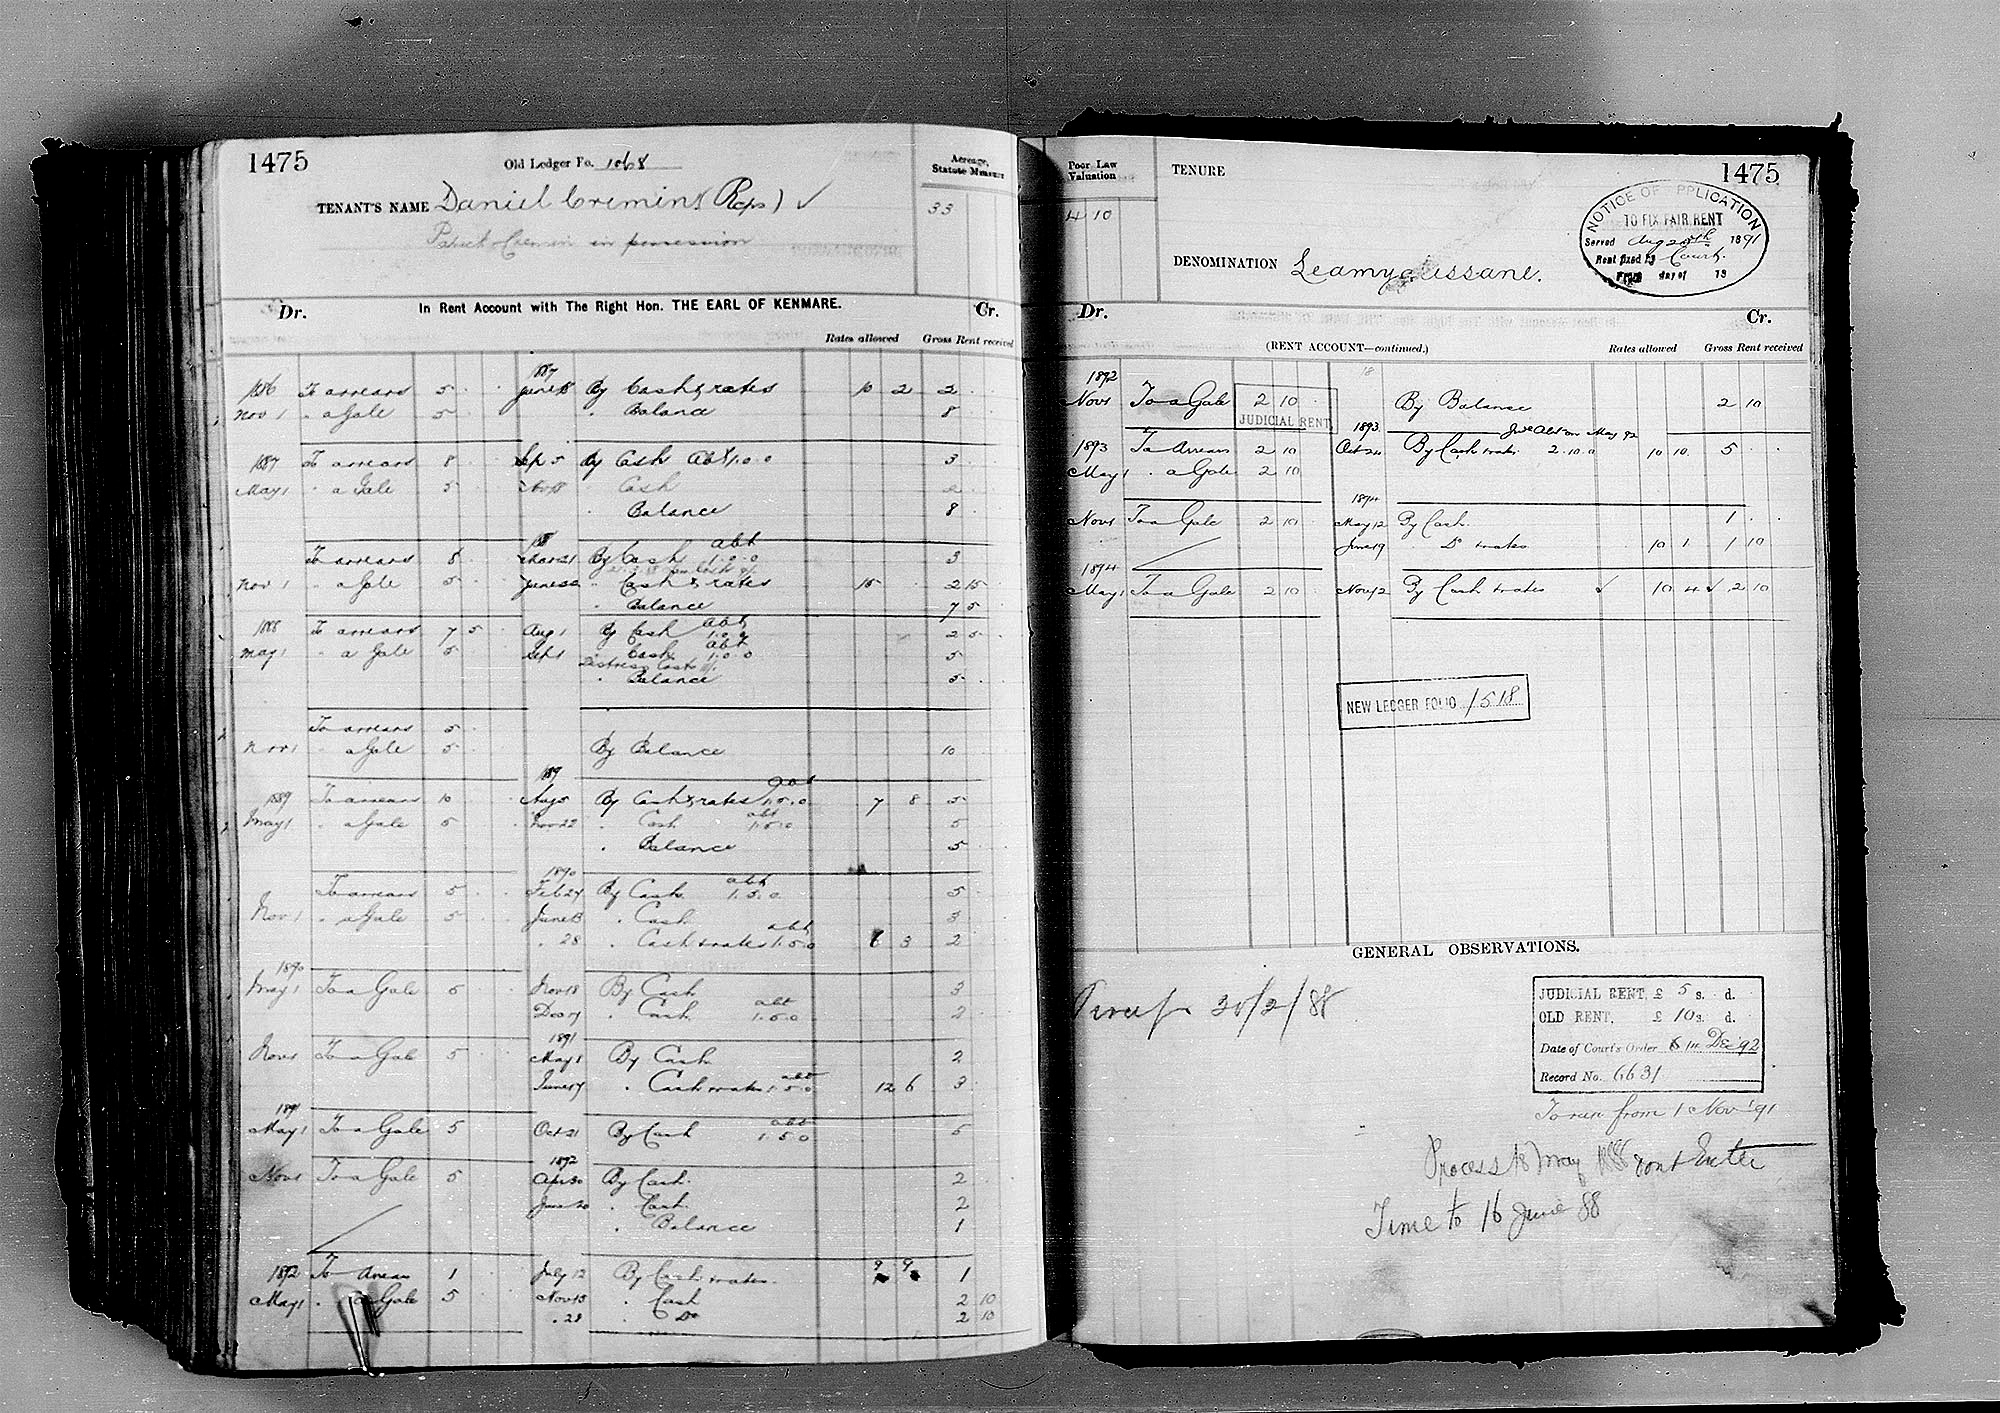 1475
Old Ledger Fo. 1068
Acreage, Statute Measure
TENANT'S NAME Daniel Cremin (Reps) ✓
33
Patrick Cremin in possession
Dr. In Rent Account with The Right Hon. THE EARL OF KENMARE. Cr.
Rates allowed Gross Rent received
1887
1886 To arrears 5 June 18 By Cash & rates 10 2 2
Nov 1 " a Gale 5 " Balance 8
1887 To arrears 8 Sep 5 By Cash Abt 1.0.0 3
May 1 " a Gale 5 Nov 18 " Cash 2
" Balance 8
88 abt
To arrears 8 Mar 21 By Cash 1.0.0 3
Nov 1 " a Gale 5 June 22 " Cash & rates 15 2 15
" Balance 7 5
1888 To arrears 7 5 Aug 1 By Cash abt 1.0.0 2 5
May 1 " a Gale 5 Sep 1 " Cash abt 1.0.0 5
Distress Costs
" Balance 5
To arrears 5
Nov 1 " a Gale 5 By Balance 10
1889 abt
1889 To arrears 10 Aug 5 By Cash & rates 1.5.0 7 8 5
May 1 " a Gale 5 Nov 22 " Cash abt 1.5.0 5
" Balance 5
1890 abt
To arrears 5 Feb 24 By Cash 1.5.0 5
Nov 1 " a Gale 5 June 13 " Cash 3
" 28 " Cash & rates abt 1.5.0 6 3 2
1890
May 1 To a Gale 5 Nov 18 By Cash 3
Dec 17 " Cash abt 1.5.0 2
1891
Nov 1 To a Gale 5 May 1 By Cash 2
June 17 " Cash & rates abt 1.5.0 12 6 3
1891
May 1 To a Gale 5 Oct 21 By Cash abt 1.5.0 5
1892
Nov 1 To a Gale 5 Apr 30 By Cash 2
June 20 " Cash 2
" Balance 1
1892 To Arrears 1 July 12 By Cash & rates 9 9 1
May 1 " a Gale 5 Nov 15 " Cash 2 10
" 29 " Do 2 10
Poor Law Valuation
TENURE
1475
4 10
NOTICE OF APPLICATION
TO FIX FAIR RENT
Served Aug 20th 1891
Rent fixed by Court.
From day of 18
DENOMINATION Leamyglissane.
Dr. Cr.
(RENT ACCOUNT—continued.) Rates allowed Gross Rent received
1892 18
Nov 1 To a Gale 2 10 By Balance 2 10
JUDICIAL RENT
1893 Abt on May 92
1893 To Arrears 2 10 Oct 24 By Cash & rates 2.10.0 10 10 5
May 1 " a Gale 2 10
1894
Nov 1 To a Gale 2 10 May 12 By Cash 1
June 19 " Do & rates 10 1 1 10
1894
May 1 To a Gale 2 10 Nov 12 By Cash & rates ✓ 10 4 ✓ 2 10
NEW LEDGER FOLIO 1518
GENERAL OBSERVATIONS.
/2/88
JUDICIAL RENT, £ 5 s. d.
OLD RENT, £ 10 s. d.
Date of Court's Order 14 Dec 92
Record No. 6631
To run from 1 Nov '91
Process to May 1886 rent
Time to 16 June 88